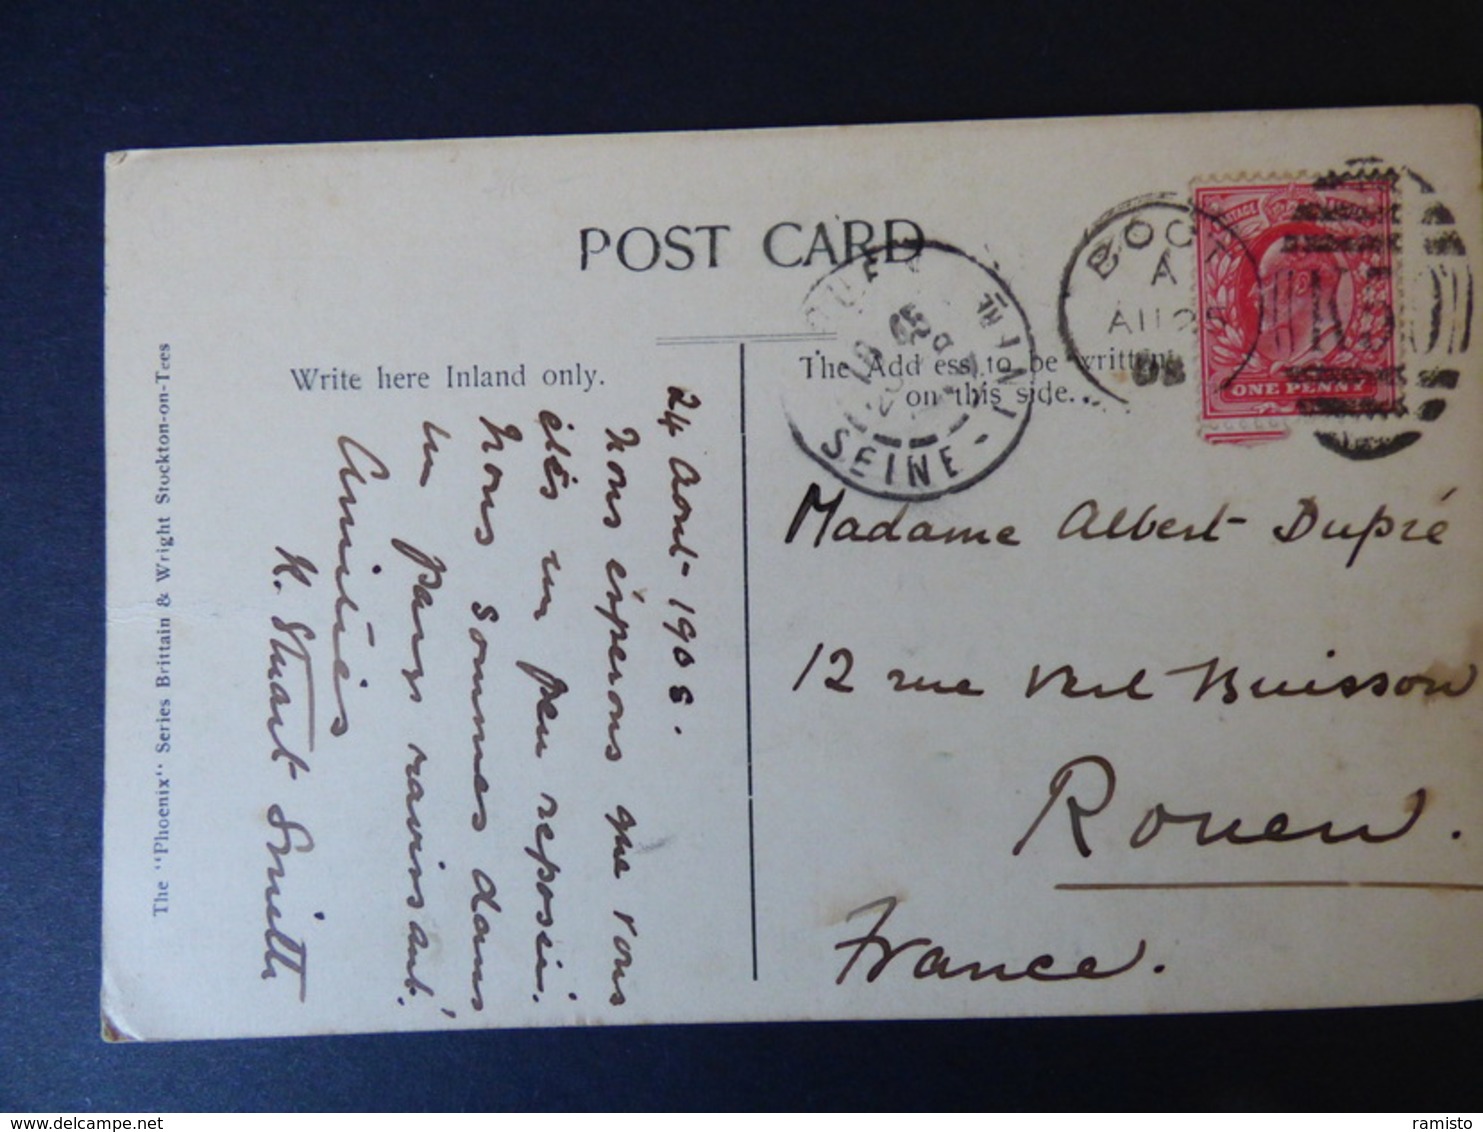 POST CARD
Write here Inland only.
The Add ess to be written
on this side.
The "Phoenix" Series Brittain & Wright Stockton-on-Tees
24 Aout - 1908.
Nous espérons que vous
êtes un peu reposée.
Nous sommes dans
un pays ravissant.
Amitiés
K. Stuart
ONE PENNY
A
AU 25
08
K50
SEINE - INFRE
Madame Albert Dupré
12 rue Vert Buisson
Rouen.
France.
delcampe.net
ramisto